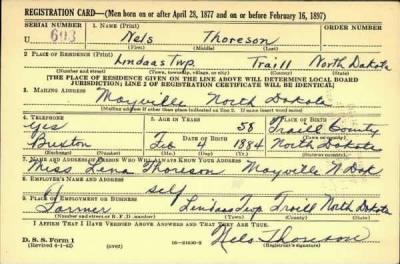 REGISTRATION CARD—(Men born on or after April 28, 1877 and on or before February 16, 1897)
SERIAL NUMBER 1. NAME (Print)
U 693 Nels Thoreson
(First) (Middle) (Last)
2. PLACE OF RESIDENCE (Print)
Lindaas Twp. Traill North Dakota
(Number and street) (Town, township, village, or city) (County) (State)
[THE PLACE OF RESIDENCE GIVEN ON THE LINE ABOVE WILL DETERMINE LOCAL BOARD
JURISDICTION; LINE 2 OF REGISTRATION CERTIFICATE WILL BE IDENTICAL]
3. MAILING ADDRESS
Mayville North Dakota
[Mailing address if other than place indicated on line 2. If same insert word same]
4. TELEPHONE 5. AGE IN YEARS 6. PLACE OF BIRTH
yes 58 Traill County
DATE OF BIRTH (Town or county)
Buxton Feb 4 1884 North Dakota
(Exchange) (Number) (Mo.) (Day) (Yr.) (State or country)
7. NAME AND ADDRESS OF PERSON WHO WILL ALWAYS KNOW YOUR ADDRESS
Miss Lena Thoreson Mayville N Dak
8. EMPLOYER'S NAME AND ADDRESS
self
9. PLACE OF EMPLOYMENT OR BUSINESS
Farmer Lindaas Twp Traill North Dakota
(Number and street or R. F. D. number) (Town) (County) (State)
I AFFIRM THAT I HAVE VERIFIED ABOVE ANSWERS AND THAT THEY ARE TRUE.
D. S. S. Form 1
(Revised 4-1-42) (over) Nels Thoreson
(Registrant's signature)